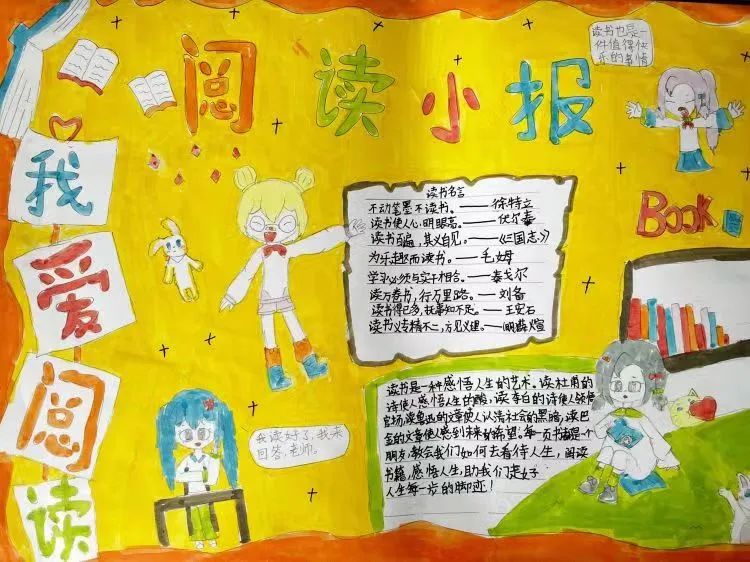 阅读小报
我爱阅读
读书也是一
件值得快
乐的事情
BOOK
读书名言
不动笔墨不读书。——徐特立
读书使人心明眼亮。——伏尔泰
读书百遍,其义自见。——《三国志》
为乐趣而读书。——毛姆
学习必须与实干相结合。——泰戈尔
读万卷书,行万里路。——刘彝
读书得已多,抚事知不足。——王安石
读书必专精不二,方见义理。——(明)薛煊
我读好了,我来
回答,老师。
读书是一种感悟人生的艺术。读杜甫的
诗使人感悟人生的酸,读李白的诗使人领悟
官场,读鲁迅的文章使人认清社会的黑暗,读巴
金的文章使人感到未来的希望。每一页书都是一个
朋友,教会我们如何去看待人生,阅读
书籍,感悟人生,助我们走好
人生每一步的脚迹!